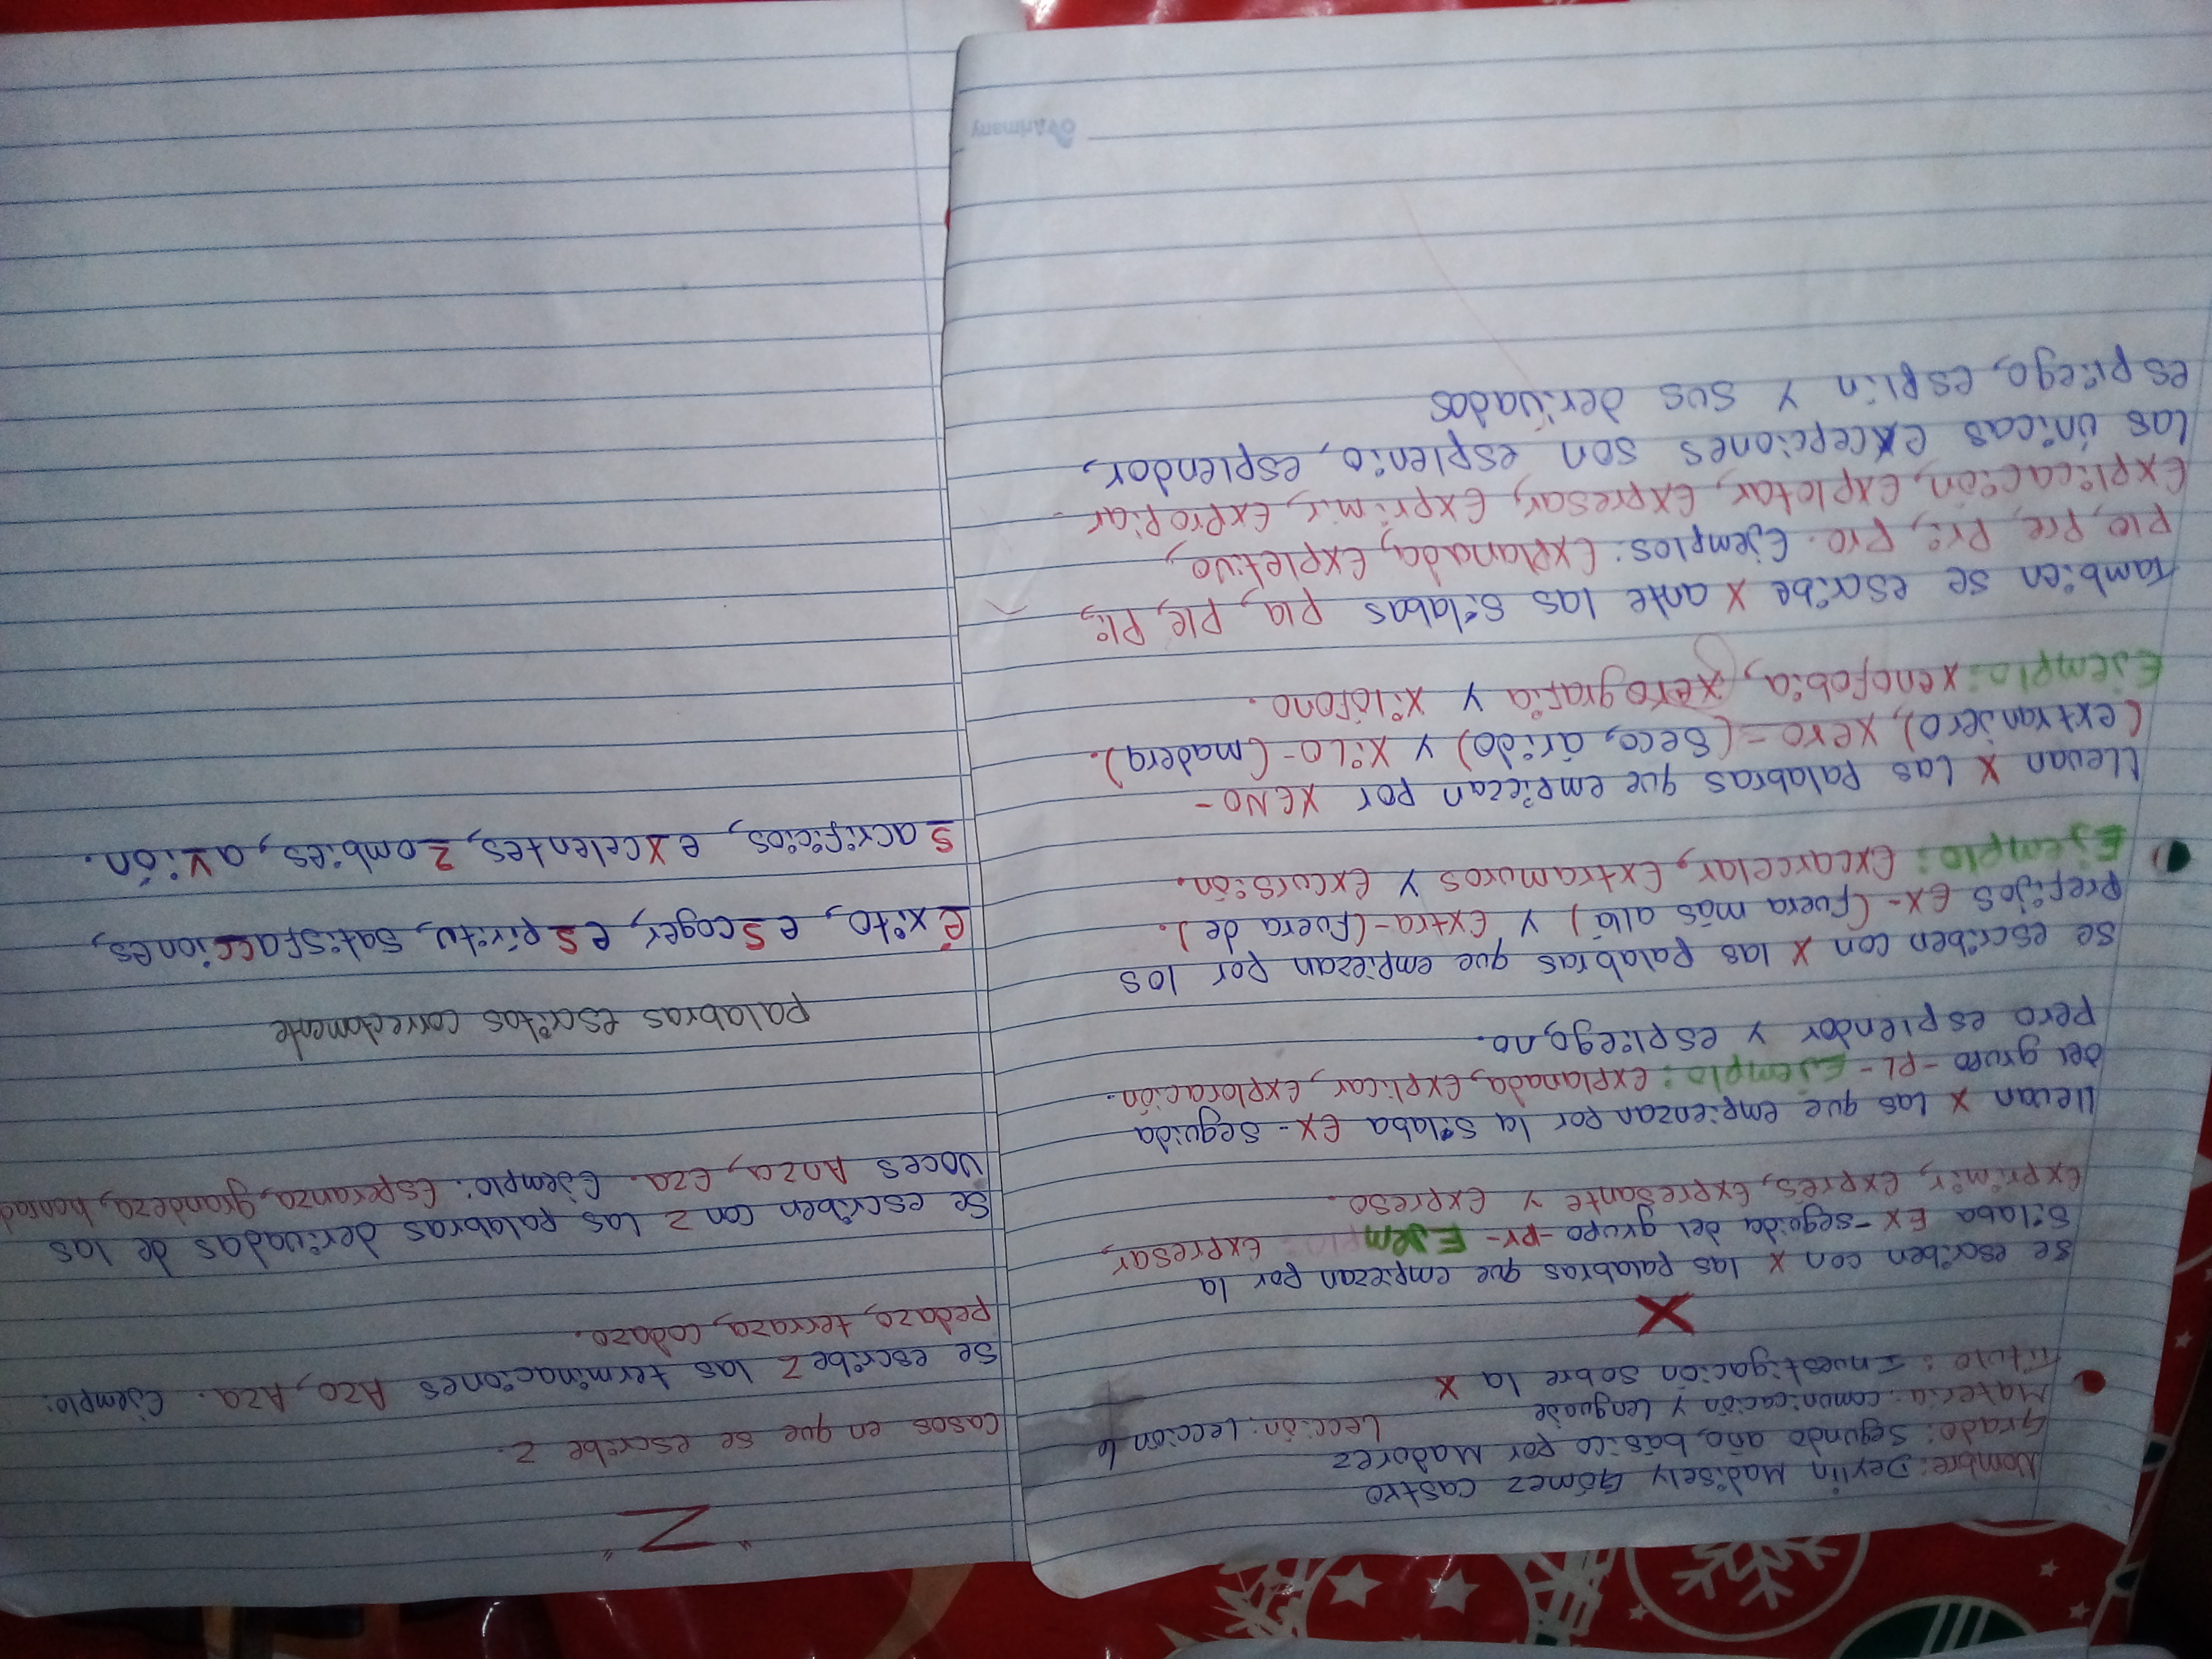 Nombre: Deylin Madisely Gómez Castro
Grado: Segundo año, básico por Madurez
Materia: comunicación y Lenguaje Lección: Lección 6
Título: Investigación sobre la X
X
Se escriben con x las palabras que empiezan por la
sílaba EX-seguida del grupo -Pr- Ejemplo: expresar,
exprimir, exprés, expresante y expreso.
llevan x las que empienzan por la sílaba ex- seguida
del grupo -PL- Ejemplo: explanada, explicar, exploración.
Pero esplendor y espliego, no.
Se escriben con x las palabras que empiezan por los
Prefijos ex- (fuera más allá) y extra-(fuera de).
Ejemplo: excarcelar, extramuros y excursión.
Llevan x las palabras que empiezan por XENO-
(extranjero), xero-(seco, árido) y xiLo-(madera).
Ejemplo: xenofobia, xerografía y xilófono.
También se escribe x ante las sílabas pla, ple, pli,
plo, pre, pri, pro. Ejemplos: Explanada, expletivo,
explicación, explotar, expresar, exprimir, expropiar.
las únicas excepciones son esplenio, esplendor,
espliego, esplín y sus derivados
Artimany
"Z"
Casos en que se escribe z.
Se escribe z las terminaciones Azo, Aza. Ejemplo:
pedazo, terraza, codazo.
Se escriben con z las palabras derivadas de las
voces Anza, eza. Ejemplo: Esperanza, grandeza, honrad
palabras escritas correctamente
éxito, escoger, espíritu, satisfacciones,
sacrificios, excelentes, zombies, avión.